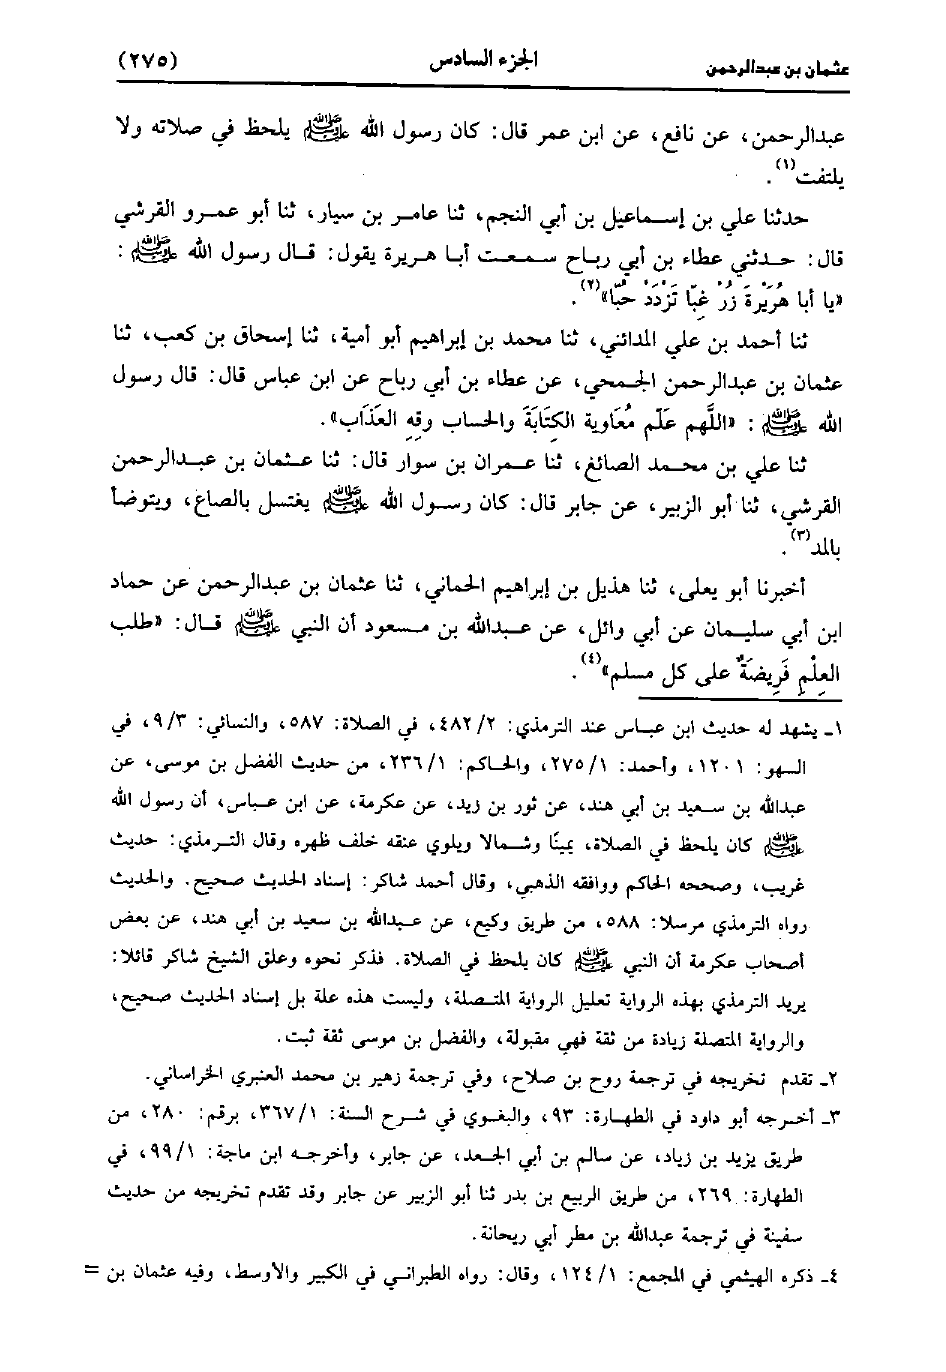 عثمان بن عبدالرحمن الجزء السادس (٢٧٥)
عبدالرحمن، عن نافع، عن ابن عمر قال: كان رسول الله ﷺ يلحظ في صلاته ولا
يلتفت(١).
حدثنا علي بن إسماعيل بن أبي النجم، ثنا عامر بن سيار، ثنا أبو عمرو القرشي
قال: حدثني عطاء بن أبي رباح سمعت أبا هريرة يقول: قال رسول الله ﷺ:
«يا أبا هُرَيْرَةَ زُرْ غِبّا تَزْدَدْ حُبّا»(٢).
ثنا أحمد بن علي المدائني، ثنا محمد بن إبراهيم أبو أمية، ثنا إسحاق بن كعب، ثنا
عثمان بن عبدالرحمن الجمحي، عن عطاء بن أبي رباح عن ابن عباس قال: قال رسول
الله ﷺ: «اللَّهم عَلِّم مُعَاوية الكِتَابَةَ والحساب وقِهِ العَذَاب».
ثنا علي بن محمد الصائغ، ثنا عمران بن سوار قال: ثنا عثمان بن عبدالرحمن
القرشي، ثنا أبو الزبير، عن جابر قال: كان رسول الله ﷺ يغتسل بالصاغ، ويتوضأ
بالمد(٣).
أخبرنا أبو يعلى، ثنا هذيل بن إبراهيم الحماني، ثنا عثمان بن عبدالرحمن عن حماد
ابن أبي سليمان عن أبي وائل، عن عبدالله بن مسعود أن النبي ﷺ قال: «طلب
العِلْمِ فَرِيضَةٌ على كل مسلم»(٤).
١ـ يشهد له حديث ابن عباس عند الترمذي: ٤٨٢/٢، في الصلاة: ٥٨٧، والنسائي: ٩/٣، في
السهو: ١٢٠١، وأحمد: ٢٧٥/١، والحاكم: ٢٣٦/١، من حديث الفضل بن موسى، عن
عبدالله بن سعيد بن أبي هند، عن ثور بن زيد، عن عكرمة، عن ابن عباس، أن رسول الله
ﷺ كان يلحظ في الصلاة، يمينًا وشمالا ويلوي عنقه خلف ظهره وقال الترمذي: حديث
غريب، وصححه الحاكم ووافقه الذهبي، وقال أحمد شاكر: إسناد الحديث صحيح. والحديث
رواه الترمذي مرسلا: ٥٨٨، من طريق وكيع، عن عبدالله بن سعيد بن أبي هند، عن بعض
أصحاب عكرمة أن النبي ﷺ كان يلحظ في الصلاة. فذكر نحوه وعلق الشيخ شاكر قائلا:
يريد الترمذي بهذه الرواية تعليل الرواية المتصلة، وليست هذه علة بل إسناد الحديث صحيح،
والرواية المتصلة زيادة من ثقة فهي مقبولة، والفضل بن موسى ثقة ثبت.
٢ـ تقدم تخريجه في ترجمة روح بن صلاح، وفي ترجمة زهير بن محمد العنبري الخراساني.
٣ـ أخرجه أبو داود في الطهارة: ٩٣، والبغوي في شرح السنة: ٣٦٧/١، برقم: ٢٨٠، من
طريق يزيد بن زياد، عن سالم بن أبي الجعد، عن جابر، وأخرجه ابن ماجة: ٩٩/١، في
الطهارة: ٢٦٩، من طريق الربيع بن بدر ثنا أبو الزبير عن جابر وقد تقدم تخريجه من حديث
سفينة في ترجمة عبدالله بن مطر أبي ريحانة.
٤ـ ذكره الهيثمي في المجمع: ١٢٤/١، وقال: رواه الطبراني في الكبير والأوسط، وفيه عثمان بن =